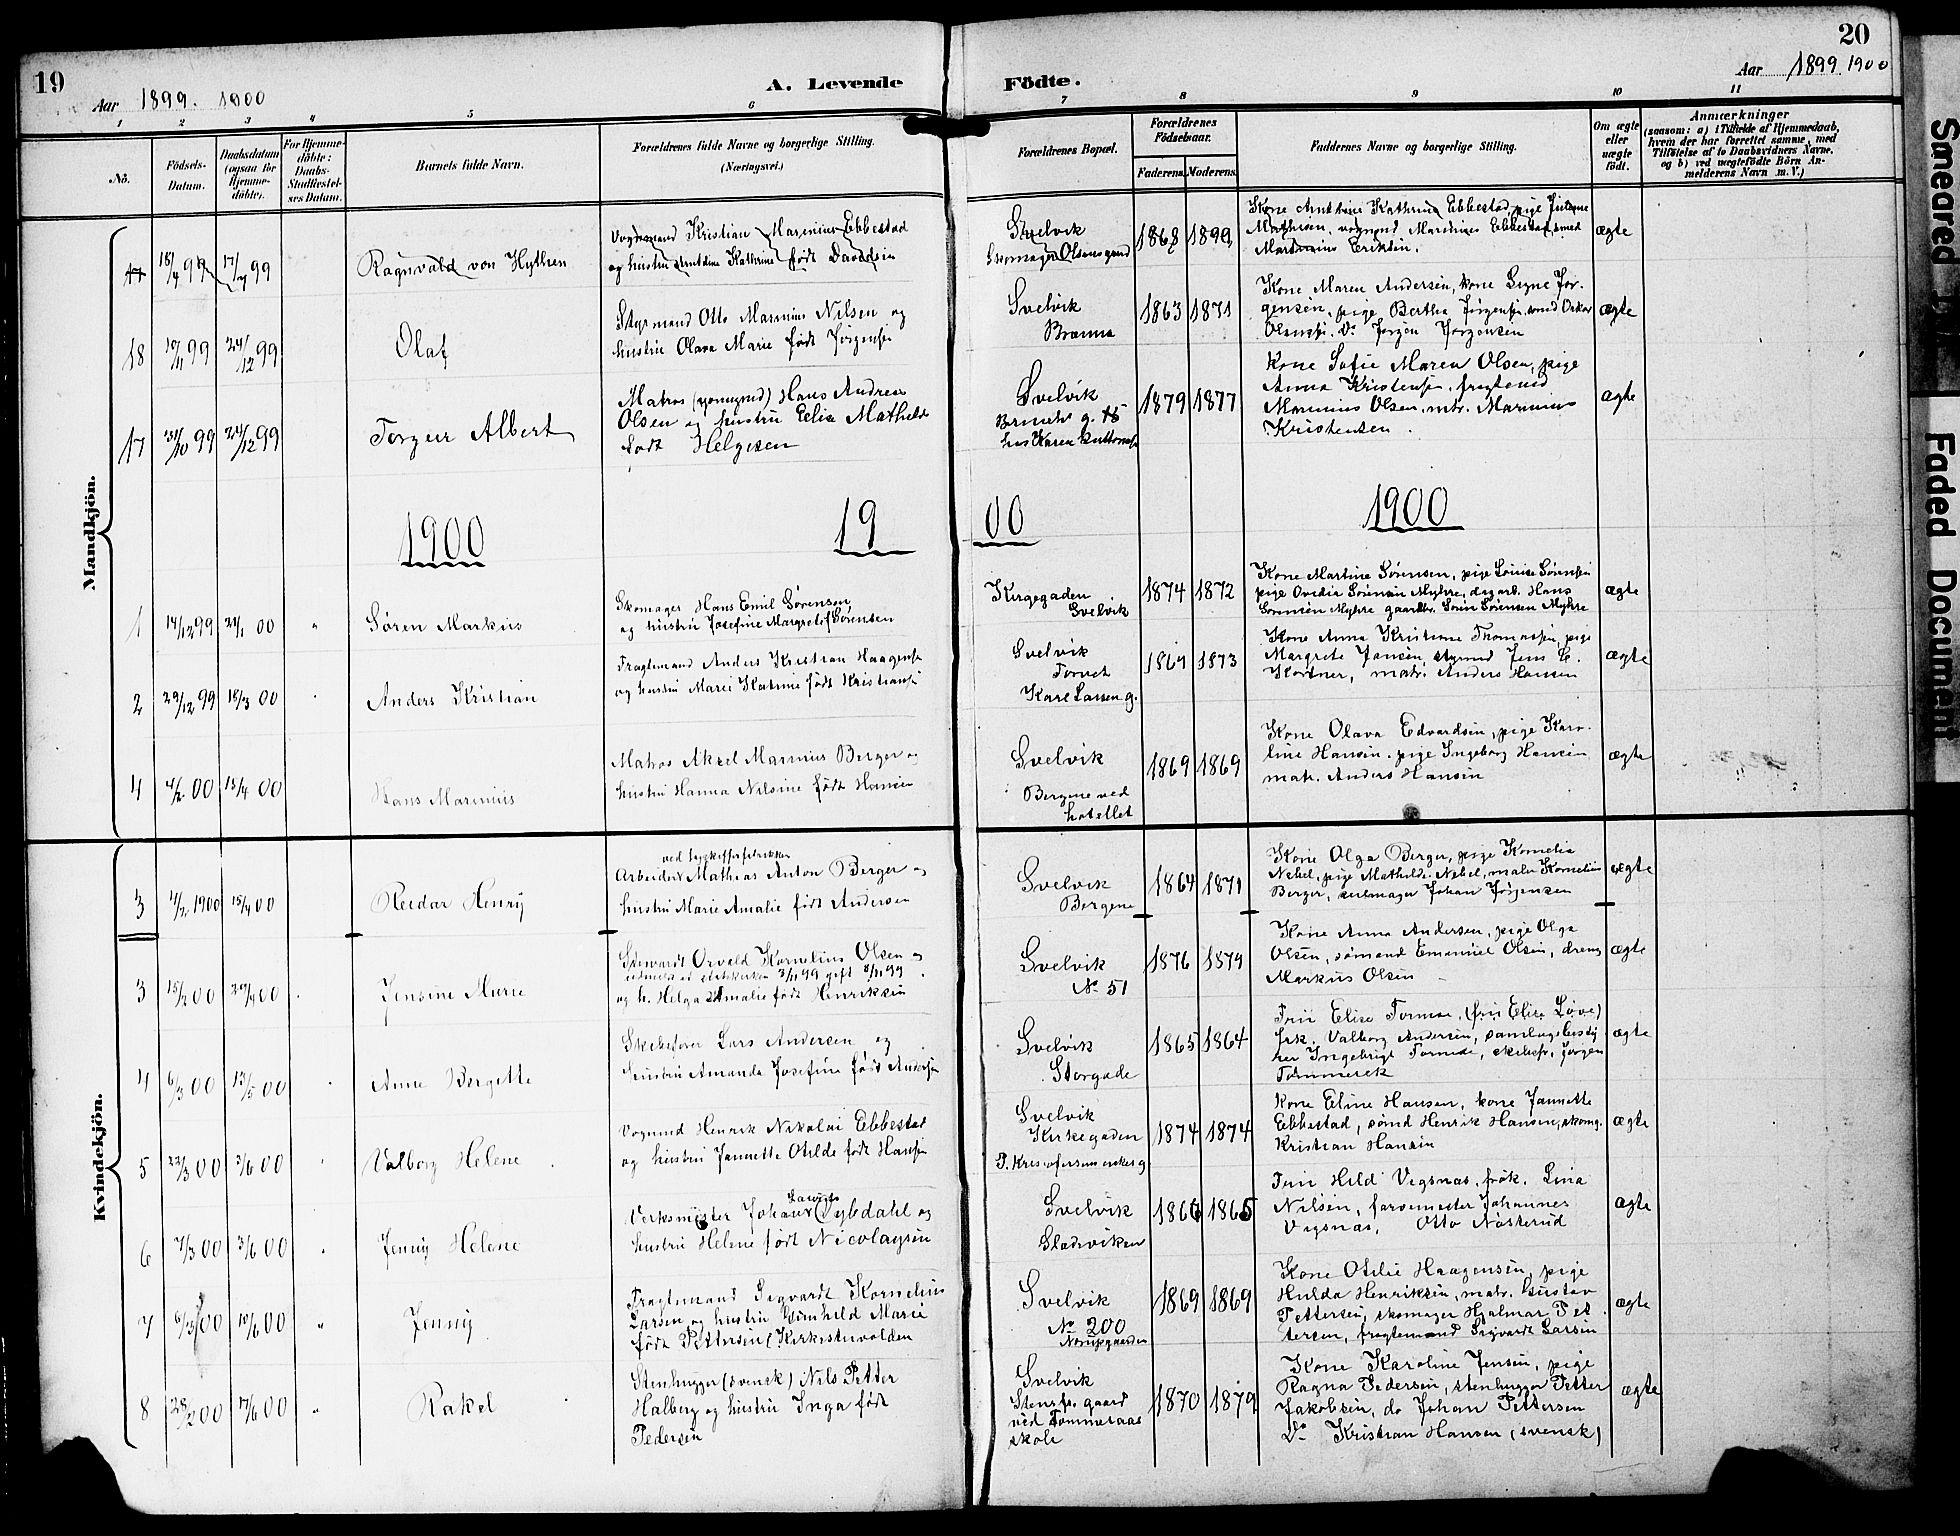 19
A. Levende
Födte.
20
Aar 1899. 1900
Aar 1899. 1900
1 2 3 4 5 6 7 8 9 10 11
No.
Födsels-
Datum.
Daabsdatum
(ogsaa for
Hjemme-
döbte).
For Hjemme-
döbte:
Daabs-
Stadfæstel-
ses Datum.
Barnets fulde Navn.
Forældrenes fulde Navne og borgerlige Stilling.
(Næringsvei.)
Forældrenes Bopæl.
Forældrenes
Födselsaar.
Faderens.
Moderens.
Faddernes Navne og borgerlige Stilling.
Om ægte
eller
uægte
födt.
Anmærkninger
(saasom: a) i Tilfælde af Hjemmedaab,
hvem der har forrettet samme, med
Tilföielse af to Daabsvidners Navne.
og b) ved uægtefödte Börn An-
melderens Navn m. V.)
Mandkjön.
17 99 17/ 99
Ragnvald von Hythen
Vognmand Kristian Marinius Ebbestad
og hustru Kathrine født Davidsen
Svelvik
Skomager Olsens gaard
1868 1899
Kone Kathrine Ebbestad, pige
Mathisen, vognmd Marinius Ebbestad, smed
Martinius Eriksen.
ægte
18 19/11 99 24/12 99
Olaf
Styrmand Otto Marinius Nilsen og
hustru Olava Marie født Jørgensen
Svelvik
Brænna
1863 1871
Kone Maren Andersen, kone Signe Jør-
gensen, pige Bertha Jørgensen, smed Oskar
Olsen, Do Jørgen Jørgensen
ægte
17 31/10 99 24/12 99
Torgeir Albert
Matros Hans Andreas
Olsen og hustru Elise Mathilde
født Helgesen
Svelvik
hos Karen
1879 1877
Kone Sofie Maren Olsen, pige
Anna Kristensen, fragtemd
Marinius Olsen, mtr. Marinius
Kristensen.
ægte
1900
19
00
1900
1 14/12 99 21/1 00 "
Søren Markus
Skomager Hans Emil Sørensen
og hustru Josefine Margrete f. Sørensen
Kirgegaden
Svelvik
1874 1872
Kone Martine Sørensen, pige Louise Sørensen
pige Ovedia Sørensen Myhre, Hans
Sørensen Myhre gaardbr. Søren Sørensen Myhre
ægte
2 29/12 99 18/3 00
Anders Kristian
Fragtemand Anders Kristian Haagensen
og hustru Marie Katrine født Kristiansen
Svelvik
Torvet
Karl Larsen g.
1867 1873
Kone Anna Kristine Thomassen, pige
Margrete Jansen, styrmd Jens C.
Kortner, matr. Anders Hansen
ægte
4 4/2 00 15/4 00
Hans Marinius
Matros Aksel Marinius Berger og
hustru Hanna Nilsine født Hansen
Svelvik
Bergene ved
hotellet
1869 1869
Kone Olava Edvardsen, pige Karo-
line Hansen. pige Ingeborg Hansen
matr. Anders Hansen
ægte
Kvindekjön.
3 4/2 1900 15/4 00
Reidar Henry
Arbeider Mathias Anton Berger og
hustru Marie Amalie født Andersen
Svelvik
Bergene
1864 1871
Kone Olga Berger, pige Kornelia
Nebel, pige Mathilde Nebel, maler Kornelius
Berger, seilmager Johan Jørgensen
ægte
3 15/2 00 29/4 00
Jensine Marie
Stewardt Osvald Kornelius Olsen og
og h. Helga Amalie født Henriksen
Svelvik
No 51
1876 1879
Kone Anna Andersen, pige Olga
Olsen, sømand Emanuel Olsen, dreng
Markus Olsen
ægte
4 6/3 00 13/5 00
Anne Bergitte
Skibsfører Lars Andersen og
hustru Amanda Josefine født Andersen
Svelvik
Storgade
1865 1864
Fru Elise Tormoe, (fru Elise Løve)
frk. Valborg Andersen, samlagsbesty
rer Ingebrigt Tormoe, skibsfr. Jørgen
Tommerek
ægte
5 22/3 00 3/6 00
Valborg Helene
Vognmd Henrik Nikolai Ebbestad
og hustru Jannette Otilde født Hansen
Svelvik
Kirkegaden
1874 1874
Kone Eline Hansen, kone Jannette
Ebbestad, sømd Henrik Hansen, skomg.
Kristian Hansen
ægte
6 7/3 00 3/6 00
Jenny Helene
Verksmester Johan Dybdahl og
hustru Helene født Nicolaysen
Svelvik
Sladrviken
1866 1865
Fru Hild Vegsnas, frøk. Lina
Nilsen, farvemester Johannes
Vegsnas, Otto Nøsterud
ægte
7 6/3 00 10/6 00 "
Jenny
Fragtemand Sigvardt Kornelius
Larsen og hustru Gunhild Marie
født Pettersen (Kirkestuvolden
Svelvik
No 200
Norupgaarden
1869 1869
Kone Otilie Haagensen, pige
Hulda Henriksen, matr. Gustav
Pettersen, skomager Hjalmar Pet
tersen, fragtemand Sigvardt Larsen
ægte
8 28/2 00 17/6 00 "
Rakel
Stenhugger (svensk) Nils Petter
Halberg og hustru Inga født
Pedersen
Svelvik
gaard
ved Tommeraas
skole
1870 1879
Kone Karoline Jensen, pige
Ragna Pedersen, stenhugger Petter
Jakobsen, do Johan Pettersen
Do Kristian Hansen (svensk)
ægte
Smeared
Faded Document